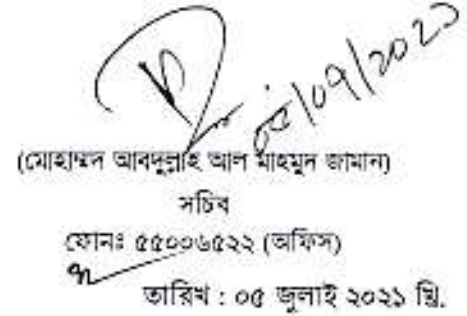 ০৫/০৭/২০২১
(মোহাম্মদ আবদুল্লাহ আল মাহমুদ জামান)
সচিব
ফোনঃ ৫৫০০৬৫২২ (অফিস)
তারিখ : ০৫ জুলাই ২০২১ খ্রি.